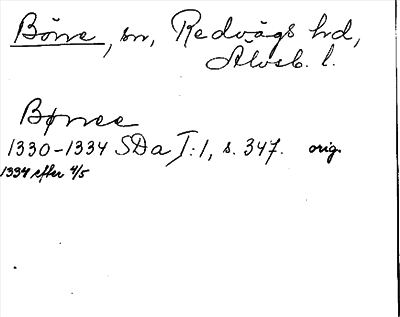 Böne, sn, Redvägs hd,
Älvsb. l.
Bønee
1330-1334 SDa I:1, s. 347. orig.
1334 efter 4/5